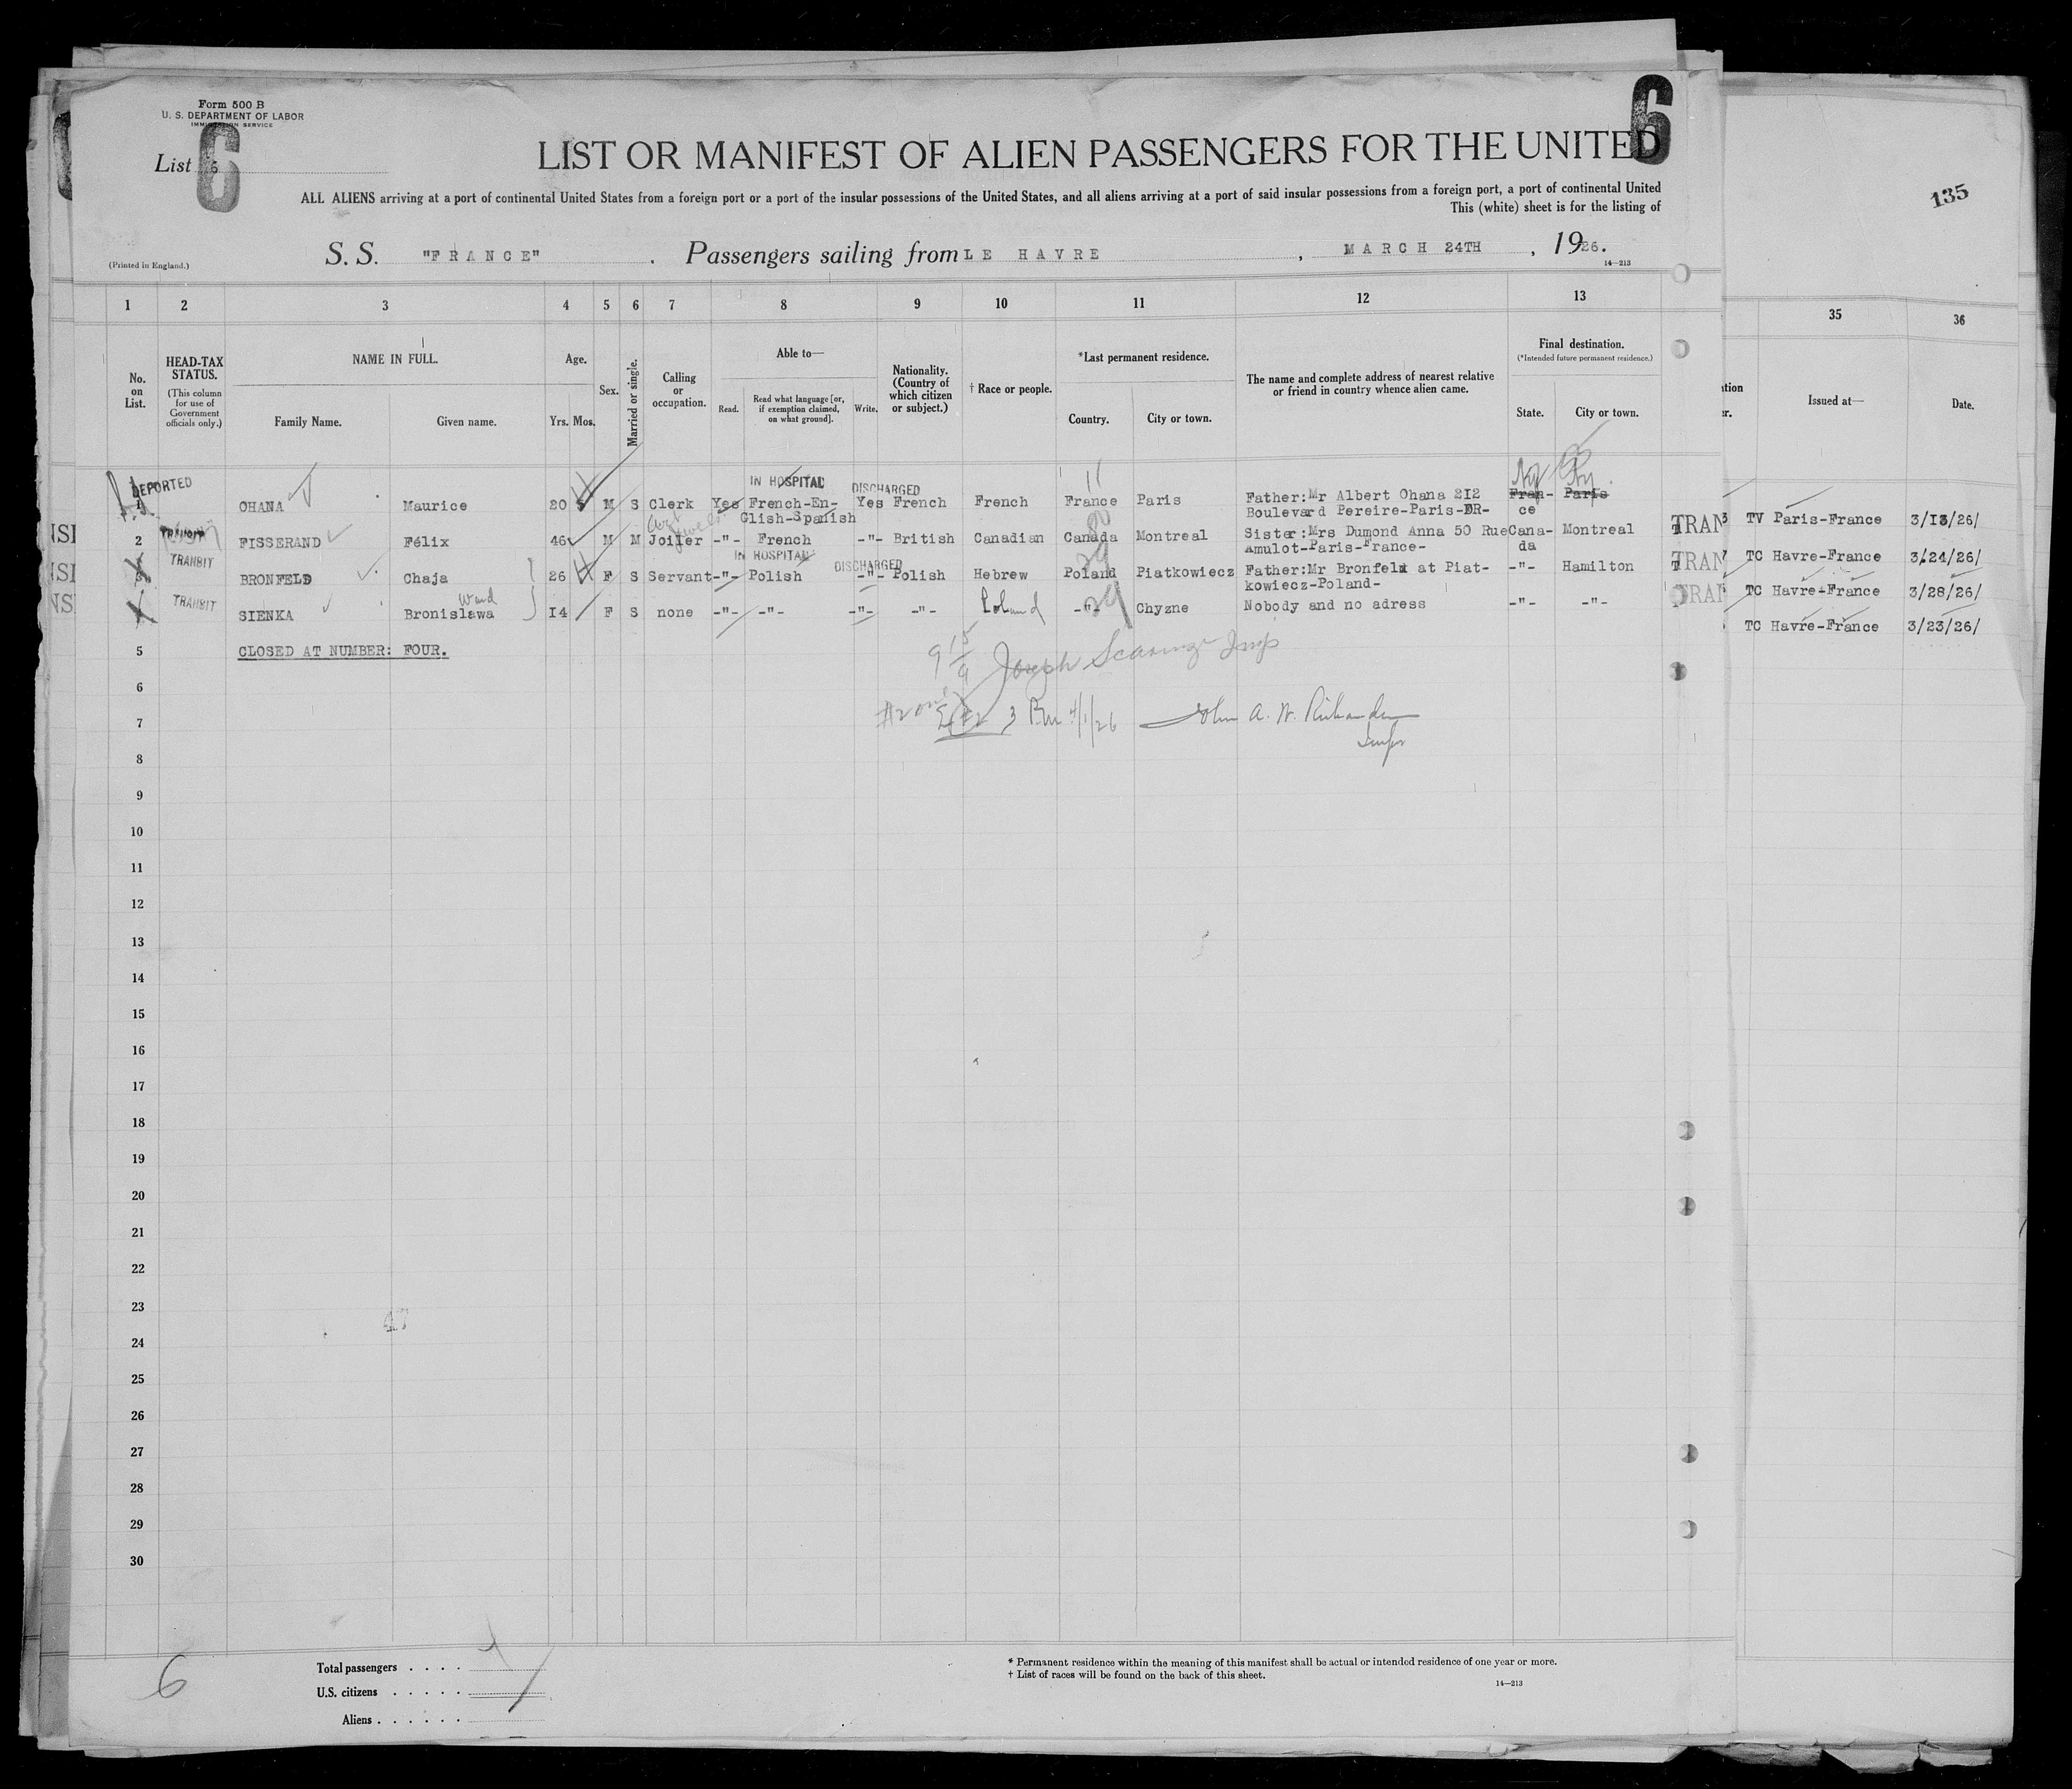 Form 500 B
U. S. DEPARTMENT OF LABOR
IMMIGRATION SERVICE
List 6
6
6
LIST OR MANIFEST OF ALIEN PASSENGERS FOR THE UNITED
ALL ALIENS arriving at a port of continental United States from a foreign port or a port of the insular possessions of the United States, and all aliens arriving at a port of said insular possessions from a foreign port, a port of continental United
This (white) sheet is for the listing of
135
(Printed in England.)
S. S. "FRANCE" . Passengers sailing from LE HAVRE , MARCH 24TH , 1926.
14—213
1 2 3 4 5 6 7 8 9 10 11 12 13 35 36
No. on List.
HEAD-TAX STATUS.
(This column for use of Government officials only.)
NAME IN FULL.
Family Name. Given name.
Age.
Yrs. Mos.
Sex.
Married or single.
Calling or occupation.
Able to—
Read. Read what language [or, if exemption claimed, on what ground]. Write.
Nationality. (Country of which citizen or subject.)
† Race or people.
*Last permanent residence.
Country. City or town.
The name and complete address of nearest relative or friend in country whence alien came.
Final destination.
(*Intended future permanent residence.)
State. City or town.
Issued at— Date.
DEPORTED IN HOSPITAL DISCHARGED
1 OHANA Maurice 20 M S Clerk Yes French-En- Yes French French France Paris Father:Mr Albert Ohana 2I2 Fran- Paris
Glish-Spanish Boulevard Pereire-Paris-FR- ce
TV Paris-France 3/13/26/
2 TRANSIT FISSERAND Félix 46 M M Joiler -"- French -"- British Canadian Canada Montreal Sister:Mrs Dumond Anna 50 Rue Cana- Montreal
amulot-Paris-France- da
TRAN TC Havre-France 3/24/26/
IN HOSPITAL DISCHARGED
3 TRANSIT BRONFELD Chaja 26 F S Servant -"- Polish -"- Polish Hebrew Poland Piatkowiecz Father:Mr Bronfeld at Piat- -"- Hamilton
kowiecz-Poland-
TRAN TC Havre-France 3/28/26/
TRANSIT SIENKA Bronislawa I4 F S none -"- -"- -"- -"- Poland -"- Chyzne Nobody and no adress -"- -"-
TRAN TC Havre-France 3/23/26/
5 CLOSED AT NUMBER: FOUR.
6
7
3 Pm 4/1/26 John A. W. Richardson
Inspr
8
9
10
11
12
13
14
15
16
17
18
19
20
21
22
23
24
25
26
27
28
29
30
6
Total passengers . . . .
U.S. citizens . . . . .
Aliens . . . . . .
* Permanent residence within the meaning of this manifest shall be actual or intended residence of one year or more.
† List of races will be found on the back of this sheet.
14—213